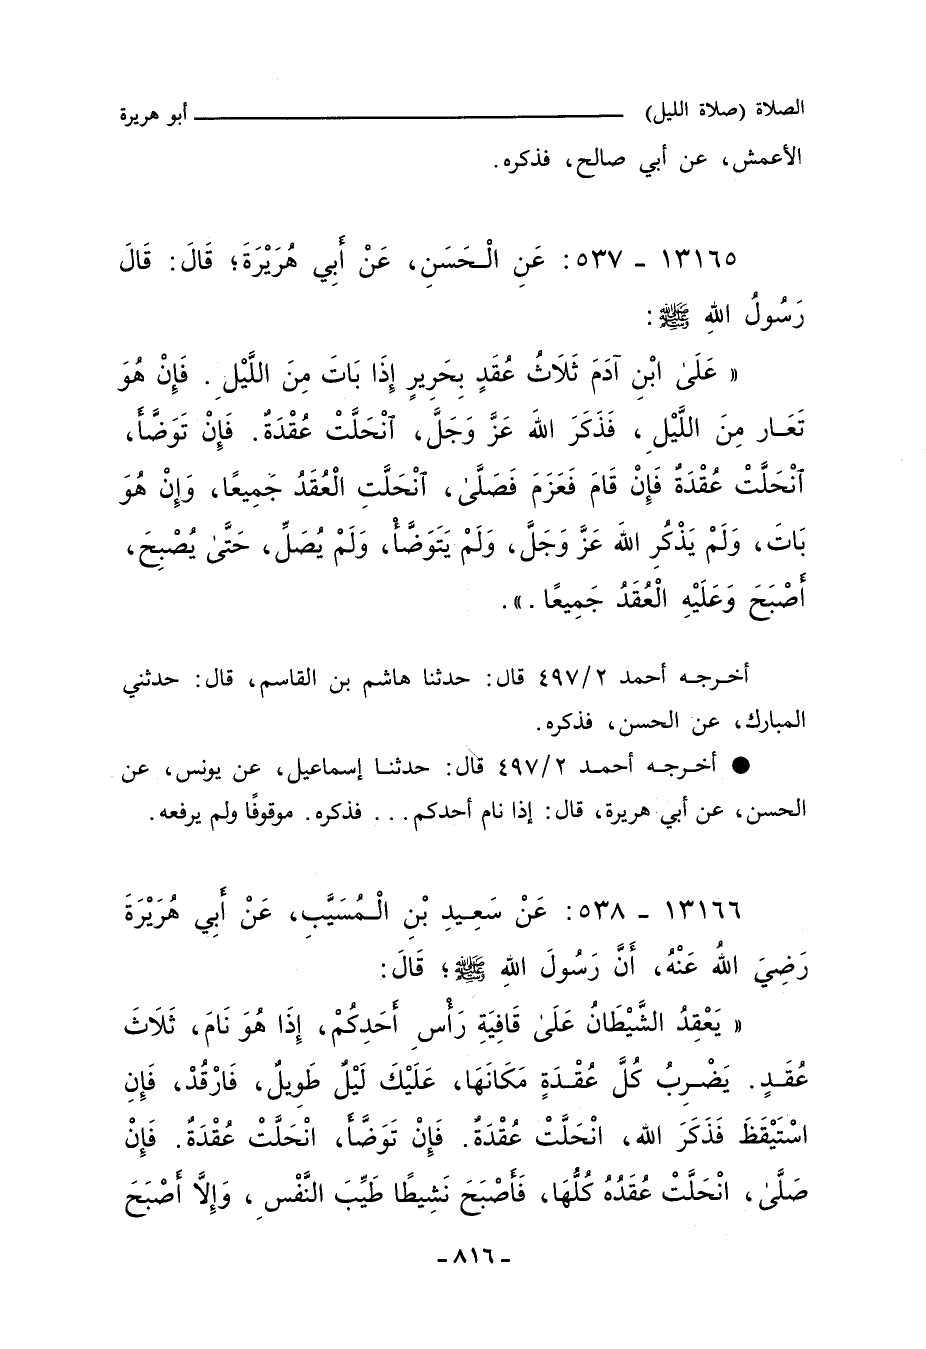 الصلاة (صلاة الليل) ـــــــــــــــــــــ أبو هريرة
الأعمش، عن أبي صالح، فذكره.
١٣١٦٥ ـ ٥٣٧: عَنِ الْحَسَنِ، عَنْ أَبِي هُرَيْرَةَ؛ قَالَ: قَالَ
رَسُولُ اللهِ ﷺ:
« عَلَىٰ ابْنِ آدَمَ ثَلَاثُ عُقَدٍ بِحَرِيرٍ إِذَا بَاتَ مِنَ اللَّيْلِ . فَإِنْ هُوَ
تَعَار مِنَ اللَّيْلِ ، فَذَكَرَ اللهَ عَزَّ وَجَلَّ، ٱنْحَلَّتْ عُقْدَةٌ. فَإِنْ تَوَضَّأَ،
ٱنْحَلَّتْ عُقْدَةٌ فَإِنْ قَامَ فَعَزَمَ فَصَلَّىٰ، ٱنْحَلَّتِ الْعُقَدُ جَمِيعًا، وَإِنْ هُوَ
بَاتَ، وَلَمْ يَذْكُرِ اللهَ عَزَّ وَجَلَّ، وَلَمْ يَتَوَضَّأْ، وَلَمْ يُصَلِّ، حَتَّىٰ يُصْبِحَ،
أَصْبَحَ وَعَلَيْهِ الْعُقَدُ جَمِيعًا .».
أخرجه أحمد ٤٩٧/٢ قال: حدثنا هاشم بن القاسم، قال: حدثني
المبارك، عن الحسن، فذكره.
● أخرجه أحمد ٤٩٧/٢ قال: حدثنا إسماعيل، عن يونس، عن
الحسن، عن أبي هريرة، قال: إذا نام أحدكم... فذكره. موقوفًا ولم يرفعه.
١٣١٦٦ ـ ٥٣٨: عَنْ سَعِيدِ بْنِ الْمُسَيَّبِ، عَنْ أَبِي هُرَيْرَةَ
رَضِيَ اللهُ عَنْهُ، أَنَّ رَسُولَ اللهِ ﷺ؛ قَالَ:
« يَعْقِدُ الشَّيْطَانُ عَلَىٰ قَافِيَةِ رَأْسِ أَحَدِكُمْ، إِذَا هُوَ نَامَ، ثَلَاثَ
عُقَدٍ. يَضْرِبُ كُلَّ عُقْدَةٍ مَكَانَهَا، عَلَيْكَ لَيْلٌ طَوِيلٌ، فَارْقُدْ، فَإِنِ
اسْتَيْقَظَ فَذَكَرَ الله، انْحَلَّتْ عُقْدَةٌ. فَإِنْ تَوَضَّأَ، انْحَلَّتْ عُقْدَةٌ. فَإِنْ
صَلَّىٰ، انْحَلَّتْ عُقَدُهُ كُلُّهَا، فَأَصْبَحَ نَشِيطًا طَيِّبَ النَّفْسِ، وَإِلَّا أَصْبَحَ
ـ ٨١٦ ـ